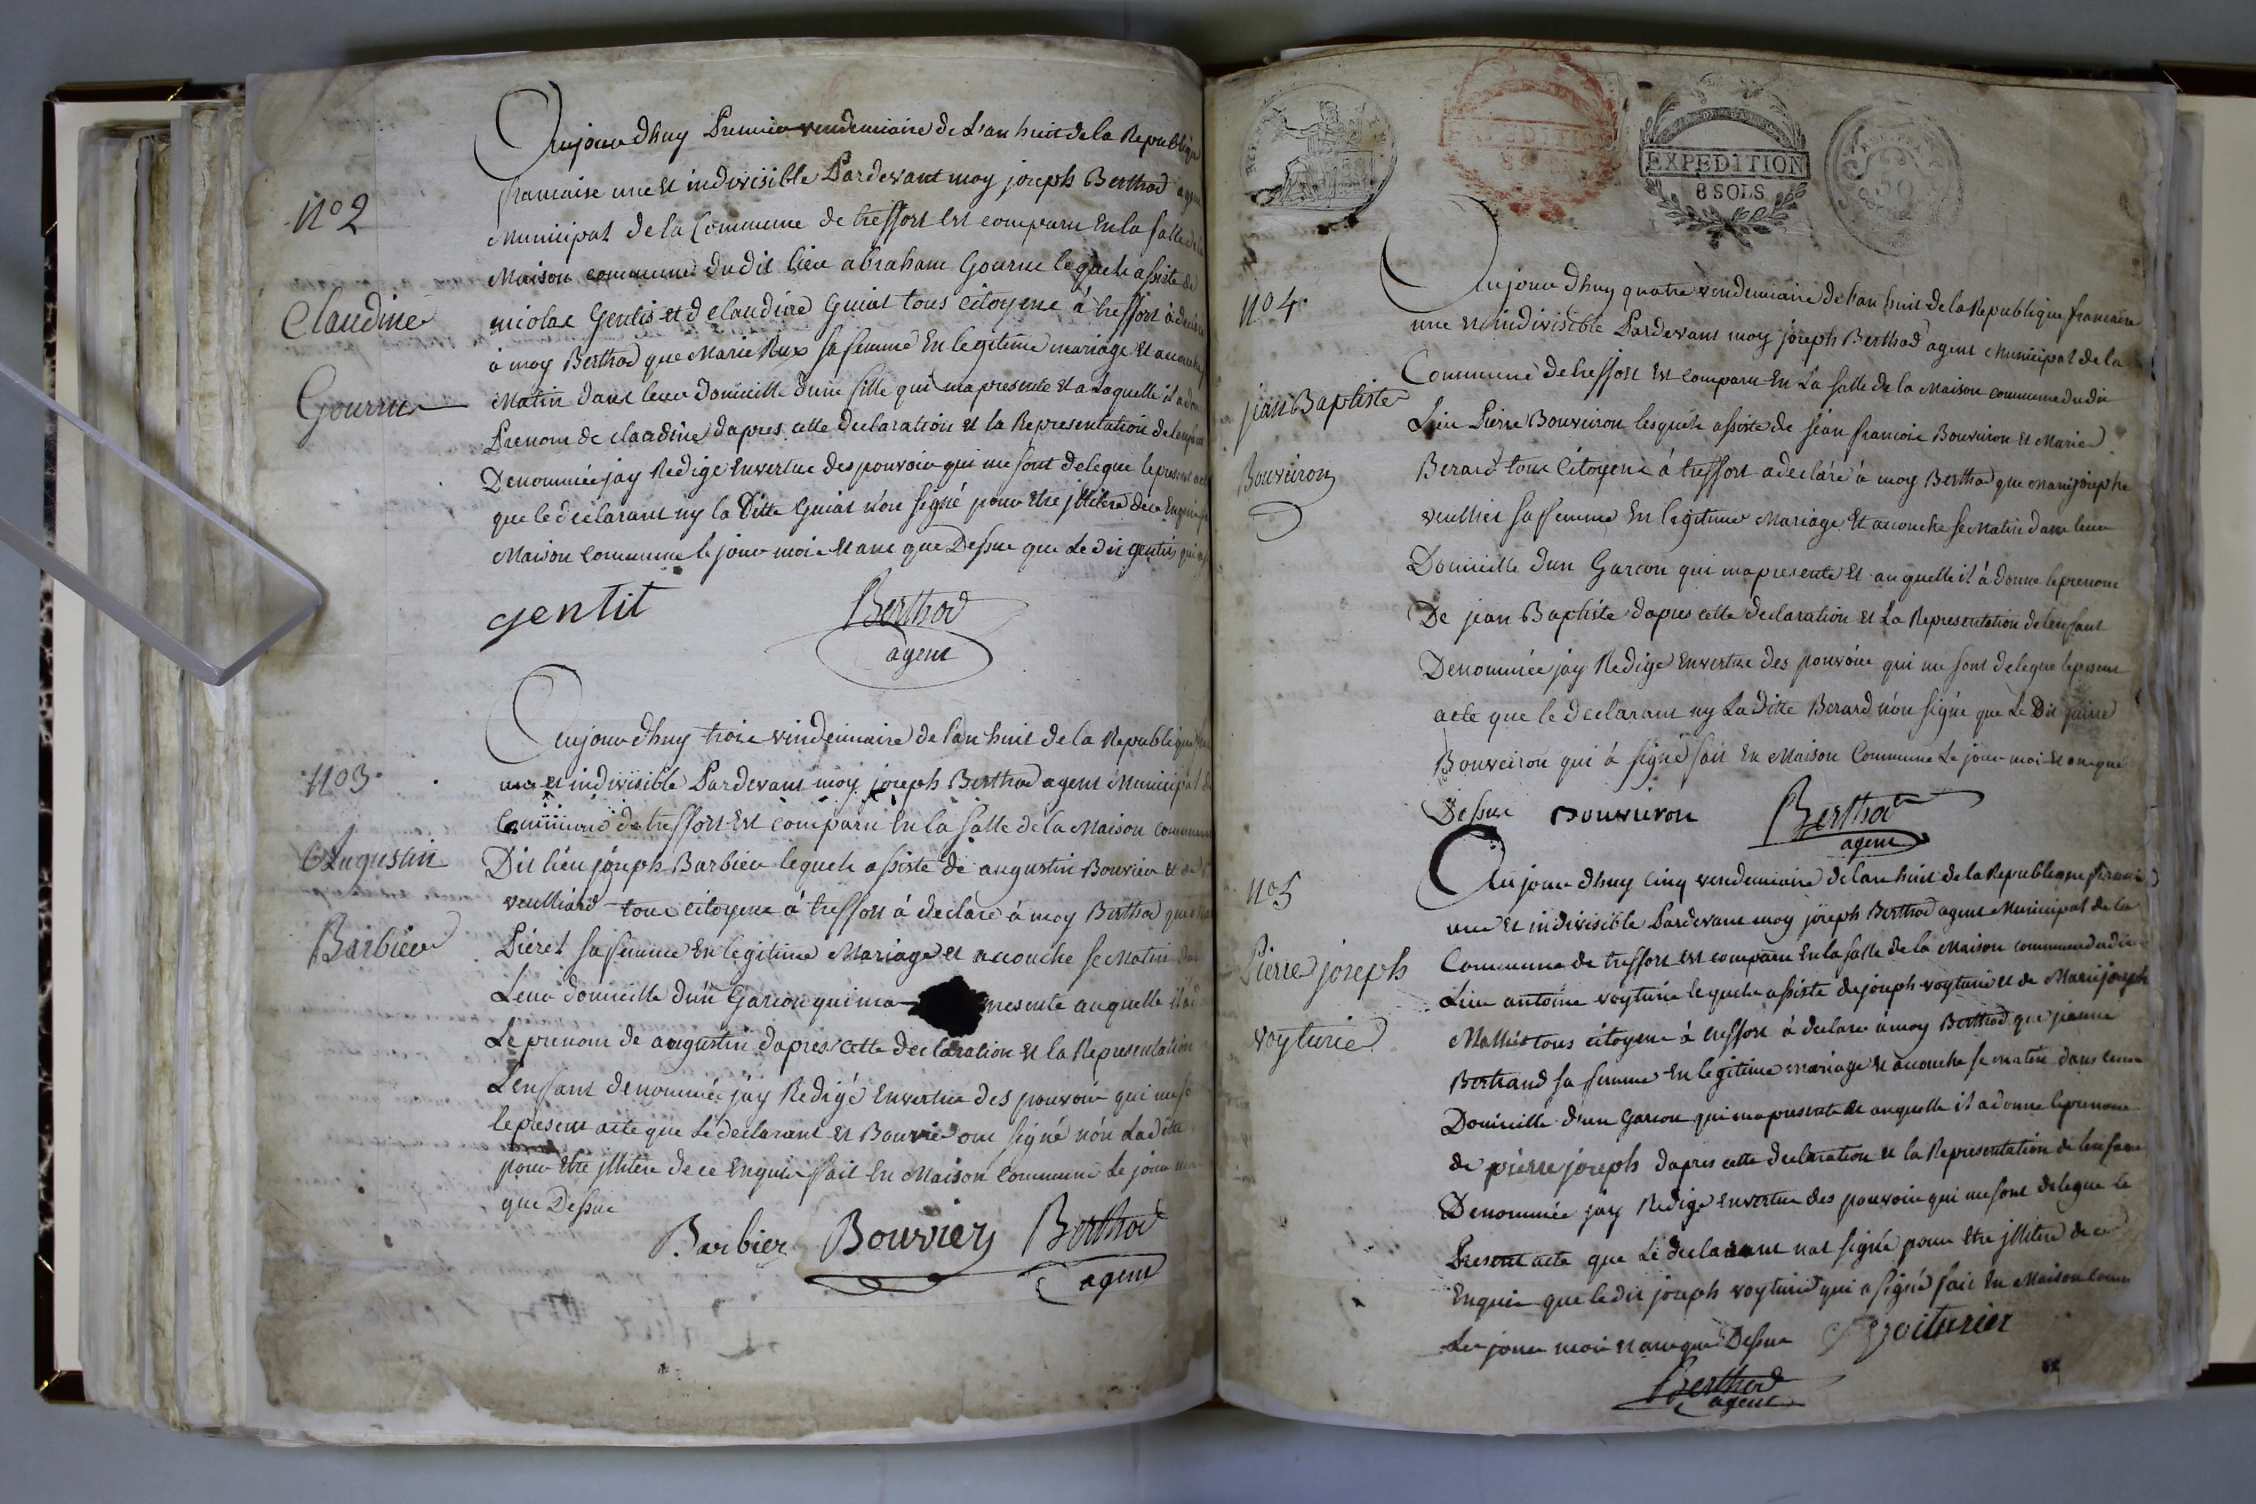 Aujourdhuy Premier vendemiaire de L'an huit de la Republique
francaise une et indivisible Pardevant moy joseph Berthod agent
N° 2
Municipal de la Commune de treffort est comparu En la salle de la
Maison commune du dit lieu abraham Gourru lequele assiste de
Claudine
nicolas Gentit et de claudine Guiat tous citoyens à treffort à declaré
à moy Berthod que Marie Rux sa femme En legitime mariage Et accouche
Gourru
Matin dans leur domicille dune fille qui ma presente et a laquelle il a donne
Prenom de claudine dapres cette declaration et la Representation de lenfant
Denommée jay Redige Envertue des pouvoir qui me sont delegue le present acte
que le declarant ny la Ditte Guiat non signé pour être jllitere de ce Enquis
Maison Commune le jour mois et ans que Dessus que Le dit gentit qui
gentit
Berthod
agent
Aujourdhuy trois vindemiaire de l'an huit de la Republique
N° 3
une et indivisible Pardevant moy joseph Berthod agent Municipal de
Commune de treffort Est comparu En la salle de la Maison commune
Augustin
Dit lieu joseph Barbier lequele assiste de augustin Bouvier et de
veulliard tous citoyens à treffort à declare à moy Berthod que
Barbier
Pieret sa femme En legitime Mariage et accouche se Matin dans
Leur domicille dun Garcon qui ma presente auquelle il a
Le prenom de augustin dapres cette declaration et la Representation
Lenfant denommée jay Redigé Envertue des pouvoir qui me
le present acte que Le declarant et Bouvier ont signé non Ladite
pour être jllitere de ce Enquis fait En Maison Commune Le jour
que Dessus
Barbier Bouvier Berthod
agent
EXPEDITION
8 SOLS
50
Aujourdhuy quatre vendemiaire de l'an huit de la Republique francaise
N° 4
une et indivisible Pardevant moy joseph Berthod agent Municipal de la
Commune de treffort Est comparu En La salle de la Maison commune du dit
jean Baptiste
Lieu Pierre Bouveiron lesquele assiste de jean francois Bouveiron et Marie
Bouveiron
Berard tous Citoyens à treffort a declaré à moy Berthod que mariejosephe
veulliet sa femme En legitime Mariage Et accouche se Matin dans leur
Domicille dun Garcon qui ma presente Et auquelle il à donne le prenom
De jean Baptiste dapres cette declaration et La Representation de lenfant
Denommée jay Redige Envertue des pouvoir qui me sont delegue le present
acte que le declarant ny La ditte Berard non signé que Le Dit
Bouveiron qui à signé fait En Maison Commune Le jour mois et an que
Dessus Bouveiron Berthod
agent
Aujourdhuy Cinq vendemiaire de lan huit de la Republique francaise
N° 5
une Et indivisible Pardevant moy joseph Berthod agent Municipal de la
Commune de treffort est comparu En la salle de la Maison commune du dit
Pierre joseph
Lieu antoine voyturié lequele assiste de joseph voyturié et de Marie joseph
voyturié
Mathiet tous citoyens à treffort à declare à moy Berthod que jeanne
Bertrand sa femme En legitime mariage et accouche se matin dans leur
Domicille d'un Garcon qui ma presente Et auquelle il a donne le prenom
de pierre joseph dapres cette declaration et la Representation de lenfant
Denommée jay Redige Envertue des pouvoir qui me sont delegue le
Present acte que Le declarant nat signé pour être jllitere de ce
Enquis que le dit joseph voyturié qui a signé fait En Maison Comm
Le jour mois et an que Dessus Voiturier
Berthod
agent